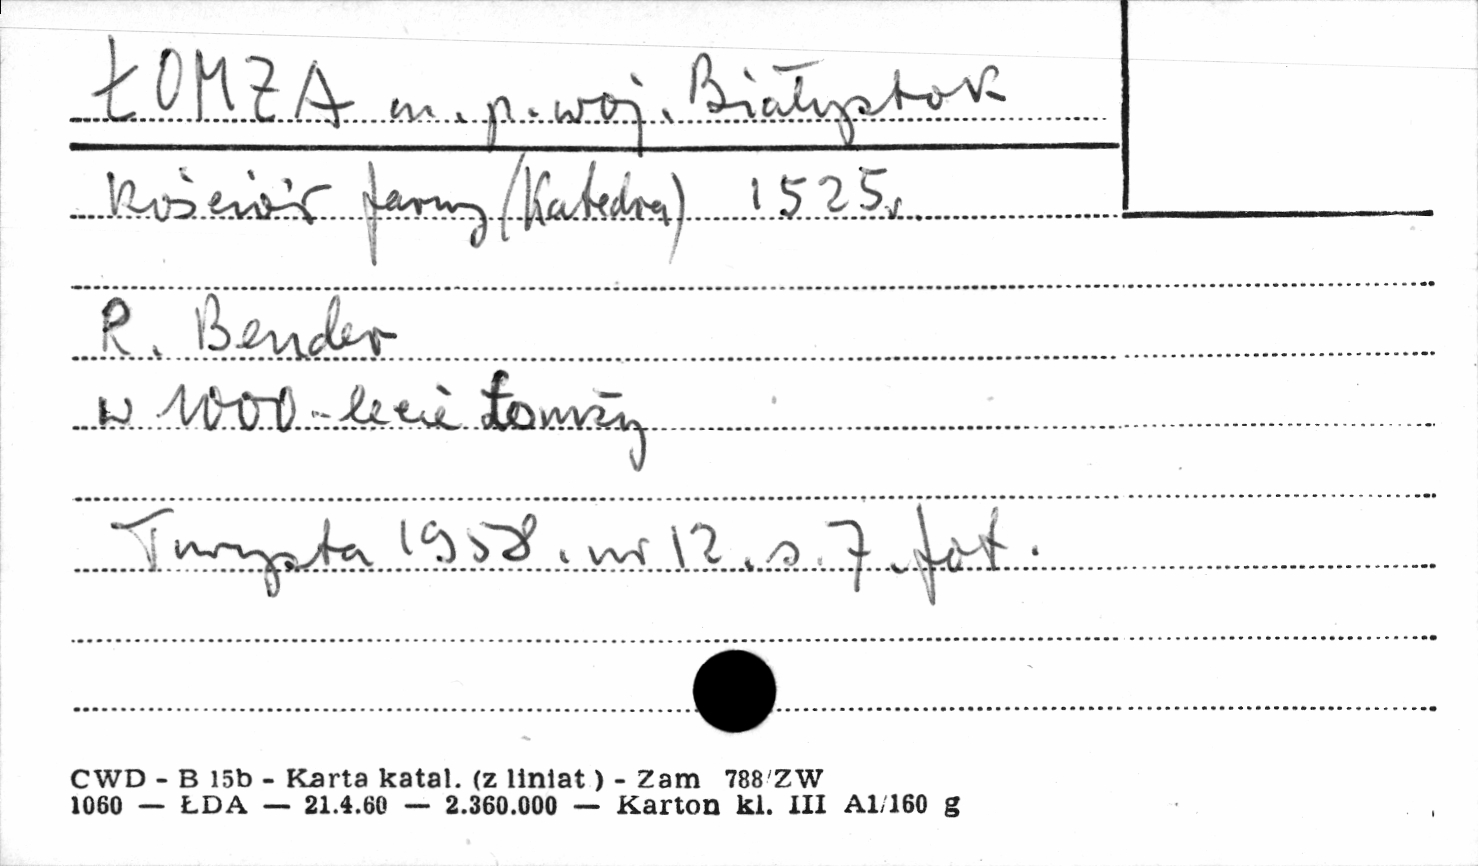 ŁOMŻA m. p. woj. Białystok
Kościół farny (Katedra) 1525 r.
R. Bender
w 1000-lecie Łomży
Turysta 1958. nr 12. s. 7. fot.
CWD - B 15b - Karta katal. (z liniat) - Zam 788/ZW
1060 — ŁDA — 21.4.60 — 2.360.000 — Karton kl. III A1/160 g